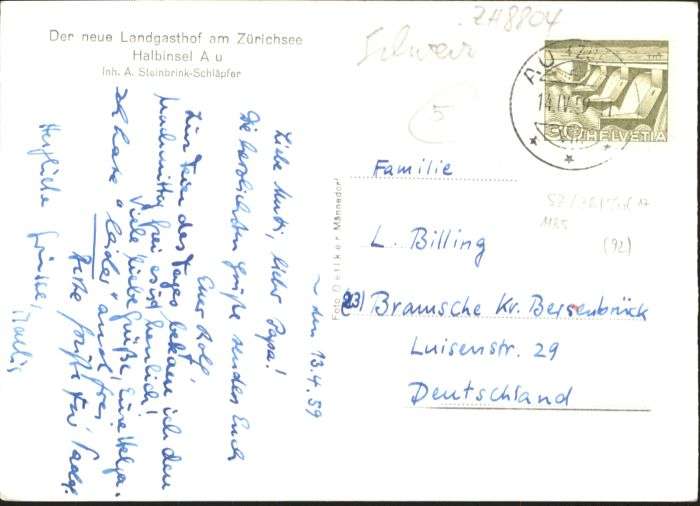 Der neue Landgasthof am Zürichsee
Halbinsel Au
Inh. A. Steinbrink-Schläpfer
ZH 8804
Schweiz
5
AU (ZÜRICH)
14.IV.59
30 HELVETIA
Foto Oetiker Männedorf
~ den 13.4.59
Liebe Mutti, lieber Papa!
Die herzlichsten Grüße senden Euch
Euer Rolf,
Zur Feier des Tages bekam ich den
Nachmittag frei es ist herrlich!
Viele liebe Grüße, Eure Helga.
Ich hatte "leider" auch frei.
Bitte für Padg.
Herzliche Grüsse,
Familie
L. Billing
(23) Bramsche Kr. Bersenbrück
Luisenstr. 29
Deutschland
1185
(92)